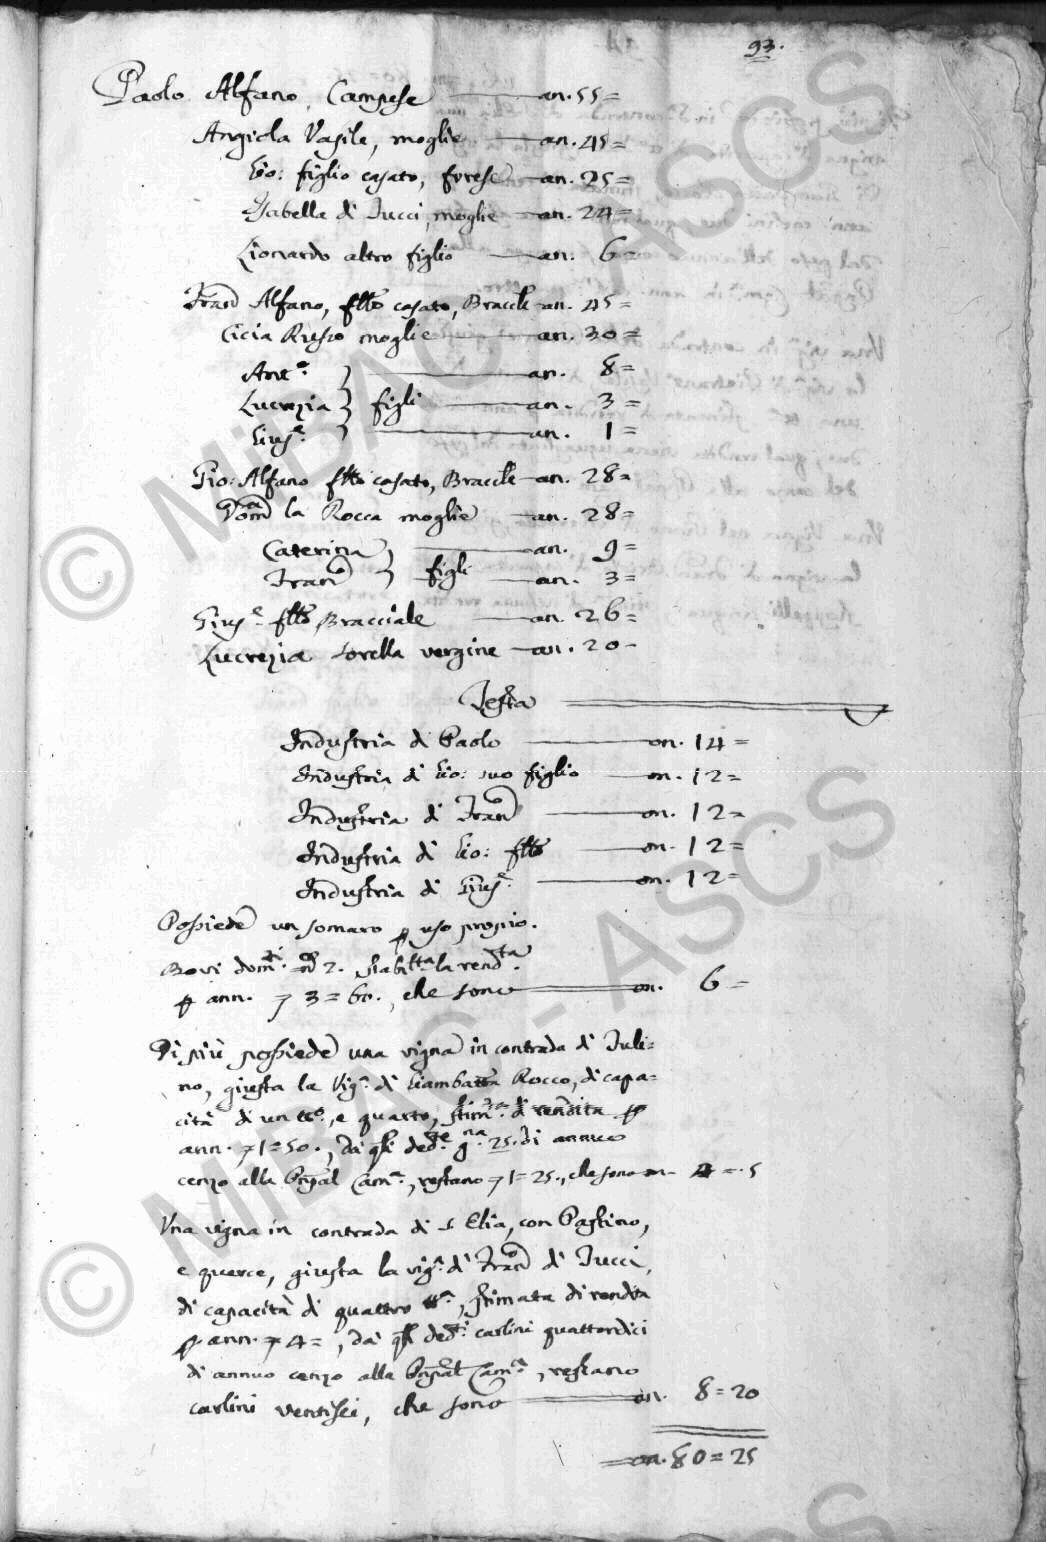 93.
Paolo Alfano, Campese — an. 55 =
Angiola Vasile, moglie — an. 45 =
Gio: figlio casato, forese — an. 25 =
Isabella di Iucci, moglie — an. 24 =
Lionardo altro figlio — an. 6 =
Franco Alfano, fllo casato, Braccle — an. 45 =
Cicia Russo moglie — an. 30 =
Anto. } — an. 8 =
Lucrezia } figli — an. 3 =
Giuse. } — an. 1 =
Gio: Alfano fllo casato, Braccle — an. 28 =
Doma la Rocca moglie — an. 28 =
Caterina } — an. 9 =
Franco } figli — an. 3 =
Giuse. fllo Bracciale — an. 26 =
Lucrezia sorella vergine — an. 20 -
Testa
Industria di Paolo — on. 14 =
Industria di Gio: suo figlio — on. 12 =
Industria di Franco — on. 12 =
Industria di Gio: fllo — on. 12 =
Industria di Giuse. — on. 12 =
Possiede un somaro p uso proprio.
Bovi domti. no 2. stabilta la rendta.
p ann. 3 = 60., che sono — on. 6 =
Di più possiede una vigna in contrada di Iuli=
no, giusta la Viga. di Giambatta Rocco, di capa=
cità di un tto., e quarto, stima. di rendita p
ann. 1 = 50., dai qli dedte gna. 25. di annuo
cenzo alla Prpal Cama., restano 1 = 25., che sono on - 4 = . 5
Una vigna in contrada di S. Elia, con Pastino,
e querce, giusta la viga. di Franco di Iucci,
di capacità di quattro tta., stimata di rendita
p ann. 4 =, dai qli dedti. carlini quattordici
di annuo cenzo alla Prpal Cama., restano
carlini ventisei, che sono — on. 8 = 20
on. 80 = 25
© MiBAC - ASCS
© MiBAC - ASCS